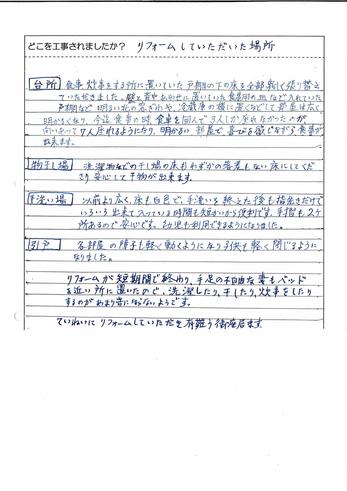 どこを工事されましたか？ リフォームしていただいた場所
台所 食事炊事をする所に置いていた戸棚の下の床を全部新しく張り替え
ていただきました。壁と背中あわせに置いていた食器用の に入れていた
戸棚など明るい北の窓ぎわや、冷蔵庫の横に置くなどして部屋は広く
明かるくなり、今迄食事の時食卓を囲んで3人しか座れなかったのが
向いあって7人座れるようになり、明かるい部屋で喜びを感じながら食事が
出来ます。
物干し場 洗濯物などの干し場の床もわずかの落差もない床にしてくだ
さり安心して干物が出来ます。
手洗い場 以前より広く、床も白色で、手洗いを終えた後も
いろいろ出来て入っている時間も短かいから便利です。手摺も2ヶ
所あるので安心です。幼児も利用できるようになりました。
引戸 各部屋の障子も軽く動くようになり子供も軽く閉じるように
なりました。
リフォームが短期間で終わり、手足の不自由な妻もベッド
を近い所に置いたので、洗濯したり、干したり、炊事をしたり
するのがあまり苦にならないようです。
ていねいにリフォームしていただき有難う御座居ます